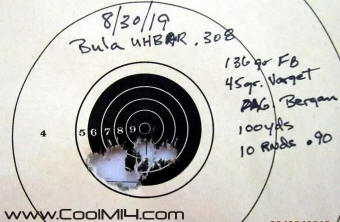 8/30/19
Bula UHBAR .308
136gr FB
45gr. Varget
Bergan
100yds
10 Rnds .90
4 5 6 7 8 9
www.CoolM14.com